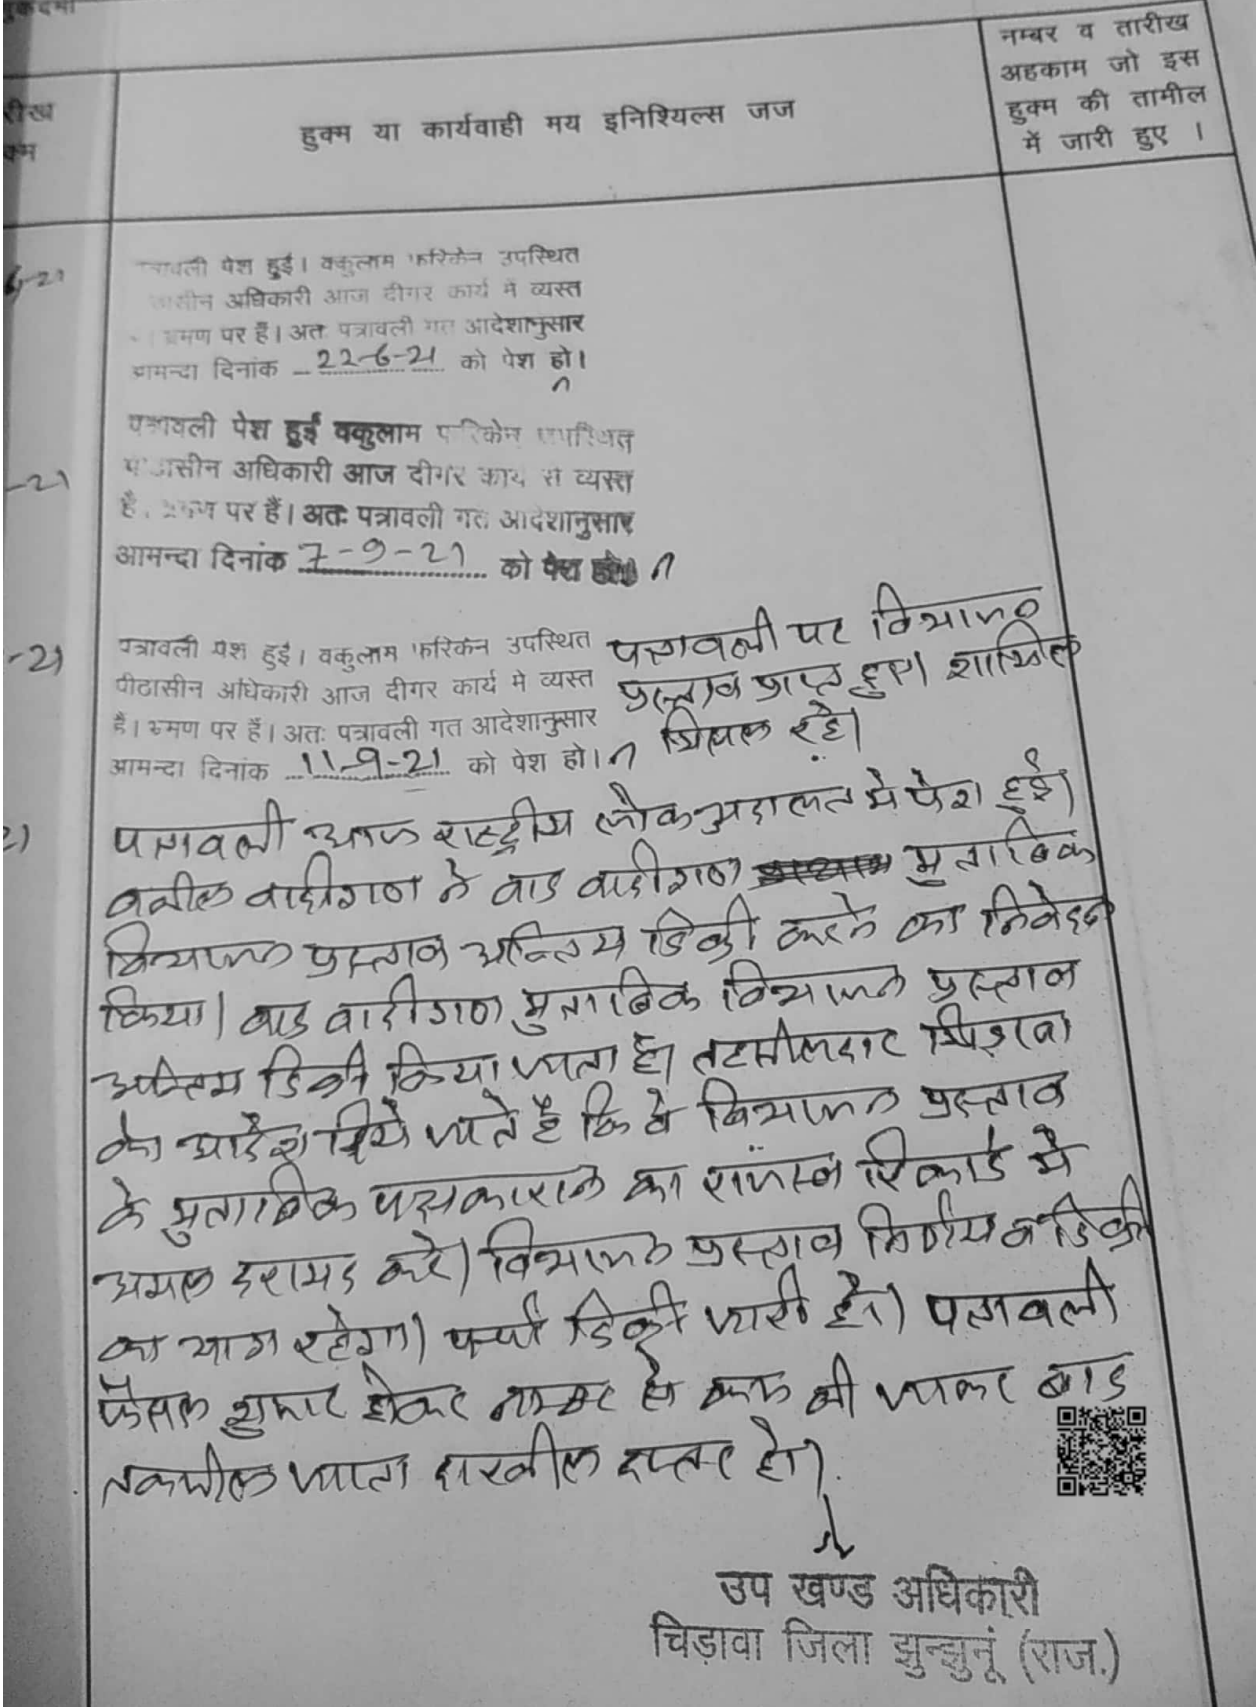 नम्बर व तारीख
अहकाम जो इस
हुक्म की तामील
में जारी हुए ।
रीख
हुक्म या कार्यवाही मय इनिश्यिल्स जज
पेश हुई। वकुलाम फरिकेन उपस्थित
अधिकारी आज दीगर कार्य मे व्यस्त
भ्रमण पर हैं। अतः पत्रावली गत आदेशानुसार
आमन्दा दिनांक 22-6-21 को पेश हो।
पत्रावली पेश हुई वकुलाम फरिकेन उपस्थित
-21
पीठासीन अधिकारी आज दीगर कार्य से व्यस्त
है। भ्रमण पर हैं। अतः पत्रावली गत आदेशानुसार
आमन्दा दिनांक 7-9-21 को पेश हो।
-21
पत्रावली पेश हुई। वकुलाम फरिकेन उपस्थित
पीठासीन अधिकारी आज दीगर कार्य मे व्यस्त
है। भ्रमण पर हैं। अतः पत्रावली गत आदेशानुसार
आमन्दा दिनांक 11-9-21 को पेश हो।
पत्रावली पर विभाजन
प्रस्ताव प्राप्त हुए। शामिल
मिसल रहे।
पत्रावली आज राष्ट्रीय लोक अदालत मे पेश हुई।
वकील वादीगण ने वाद वादीगण मुताबिक
विभाजन प्रस्ताव अन्तिम डिक्री करने का निवेदन
किया। वाद वादीगण मुताबिक विभाजन प्रस्ताव
अन्तिम डिक्री किया जाता है। तहसीलदार चिड़ावा
को आदेश दिये जाते है कि वे विभाजन प्रस्ताव
के मुताबिक पक्षकारान का राजस्व रिकार्ड मे
अमल दरामद करे। विभाजन प्रस्ताव निर्णय व डिक्री
का भाग रहेगा। पर्चा डिक्री जारी हो। पत्रावली
फैसल शुमार होकर नम्बर से कम की जाकर बाद
तकमील जाता दाखील दफ्तर हो।
उप खण्ड अधिकारी
चिड़ावा जिला झुन्झुनूं (राज.)